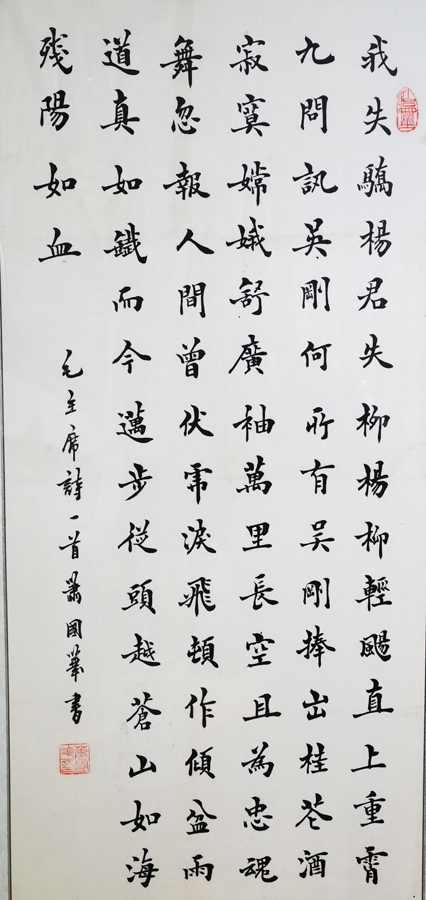 我失驕楊君失柳楊柳輕颺直上重霄
九問訊吳剛何所有吳剛捧出桂花酒
寂寞嫦娥舒廣袖萬里長空且為忠魂
舞忽報人間曾伏虎淚飛頓作傾盆雨
道真如鐵而今邁步從頭越蒼山如海
殘陽如血
毛主席詩一首蕭國書